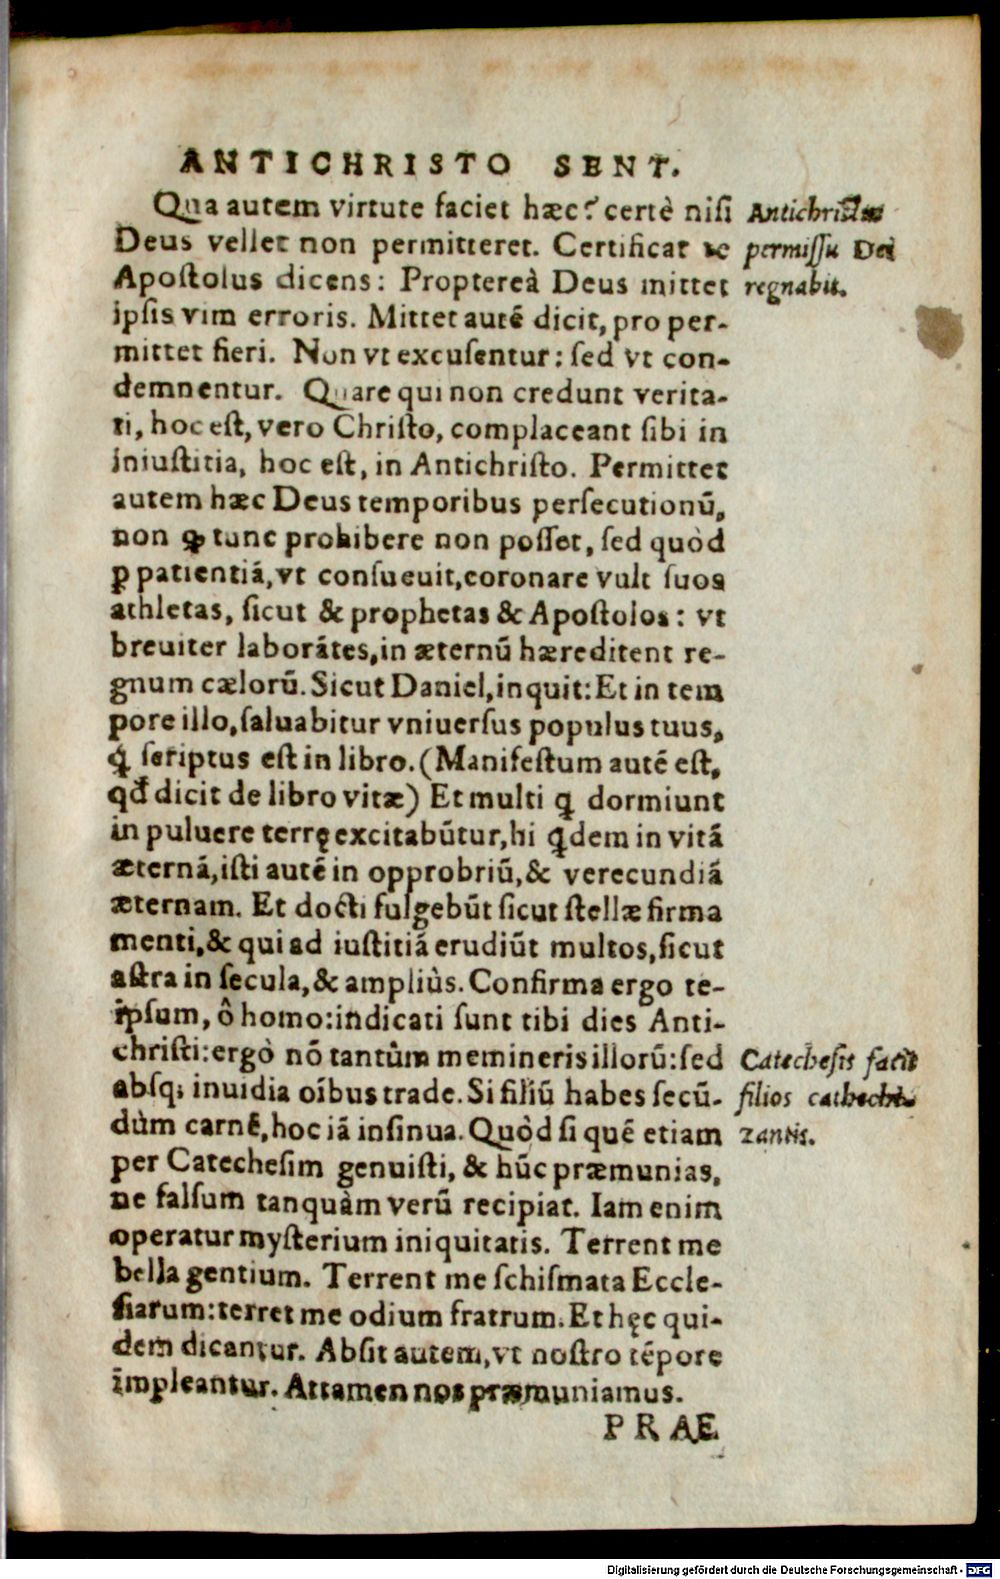 ANTICHRISTO SENT.
Qua autem virtute faciet hæc? certè nisi
Deus vellet non permitteret. Certificat te
Apostolus dicens: Proptereà Deus mittet
ipsis vim erroris. Mittet autē dicit, pro per-
mittet fieri. Non vt excusentur: sed vt con-
demnentur. Quare qui non credunt verita-
ti, hoc est, vero Christo, complaceant sibi in
iniustitia, hoc est, in Antichristo. Permittet
autem hæc Deus temporibus persecutionū,
non ꝙ tunc prohibere non posset, sed quòd
ꝑ patientiā, vt consueuit, coronare vult suos
athletas, sicut & prophetas & Apostolos: vt
breuiter laborātes, in æternū hæreditent re-
gnum cælorū. Sicut Daniel, inquit: Et in tem
pore illo, saluabitur vniuersus populus tuus,
q́ scriptus est in libro. (Manifestum autē est,
qd́ dicit de libro vitæ) Et multi q́ dormiunt
in puluere terrę excitabūtur, hi q́dem in vitā
æternā, isti autē in opprobriū, & verecundiā
æternam. Et docti fulgebūt sicut stellæ firma
menti, & qui ad iustitiā erudiūt multos, sicut
astra in secula, & ampliùs. Confirma ergo te-
ipsum, ô homo: indicati sunt tibi dies Anti-
christi: ergò nō tantùm memineris illorū: sed
absq; inuidia oībus trade. Si filiū habes secū-
dùm carnē, hoc iā insinua. Quòd si quē etiam
per Catechesim genuisti, & hūc præmunias,
ne falsum tanquàm verū recipiat. Iam enim
operatur mysterium iniquitatis. Terrent me
bella gentium. Terrent me schismata Eccle-
siarum: terret me odium fratrum. Et hęc qui-
dem dicantur. Absit autem, vt nostro tēpore
impleantur. Attamen nos præmuniamus.
PRAE
Antichristus
permissu Dei
regnabit.
Catechesis facit
filios cathechi-
zantis.
Digitalisierung gefördert durch die Deutsche Forschungsgemeinschaft - DFG